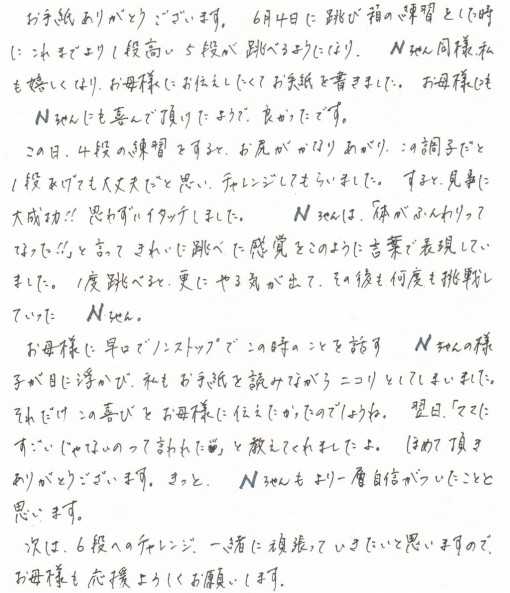 お手紙ありがとうございます。 6月4日に跳び箱の練習をした時
にこれまでより1段高い5段が跳べるようになり、 Nちゃん同様、私
も嬉しくなり、お母様にお伝えしたくてお手紙を書きました。お母様にも
Nちゃんにも喜んで頂けたようで、良かったです。
この日、4段の練習をすると、お尻がかなりあがり、この調子だと
1段あげても大丈夫だと思い、チャレンジしてもらいました。すると、見事に
大成功!! 思わずハイタッチしました。 Nちゃんは、「体がふんわりって
なった!!」と言って きれいに跳べた感覚をこのように言葉で表現してい
ました。1度跳べると、更にやる気が出て、その後も何度も挑戦し
ていった Nちゃん。
お母様に早口でノンストップでこの時のことを話す Nちゃんの様
子が目に浮かび、私もお手紙を読みながらニコリとしてしまいました。
それだけこの喜びをお母様に伝えたかったのでしょうね。 翌日、「ママに
すごいじゃないのって言われた」と教えてくれましたよ。 ほめて頂き
ありがとうございます。きっと、 Nちゃんもより一層自信がついたことと
思います。
次は、6段へのチャレンジ、一緒に頑張っていきたいと思いますので、
お母様も応援よろしくお願いします。